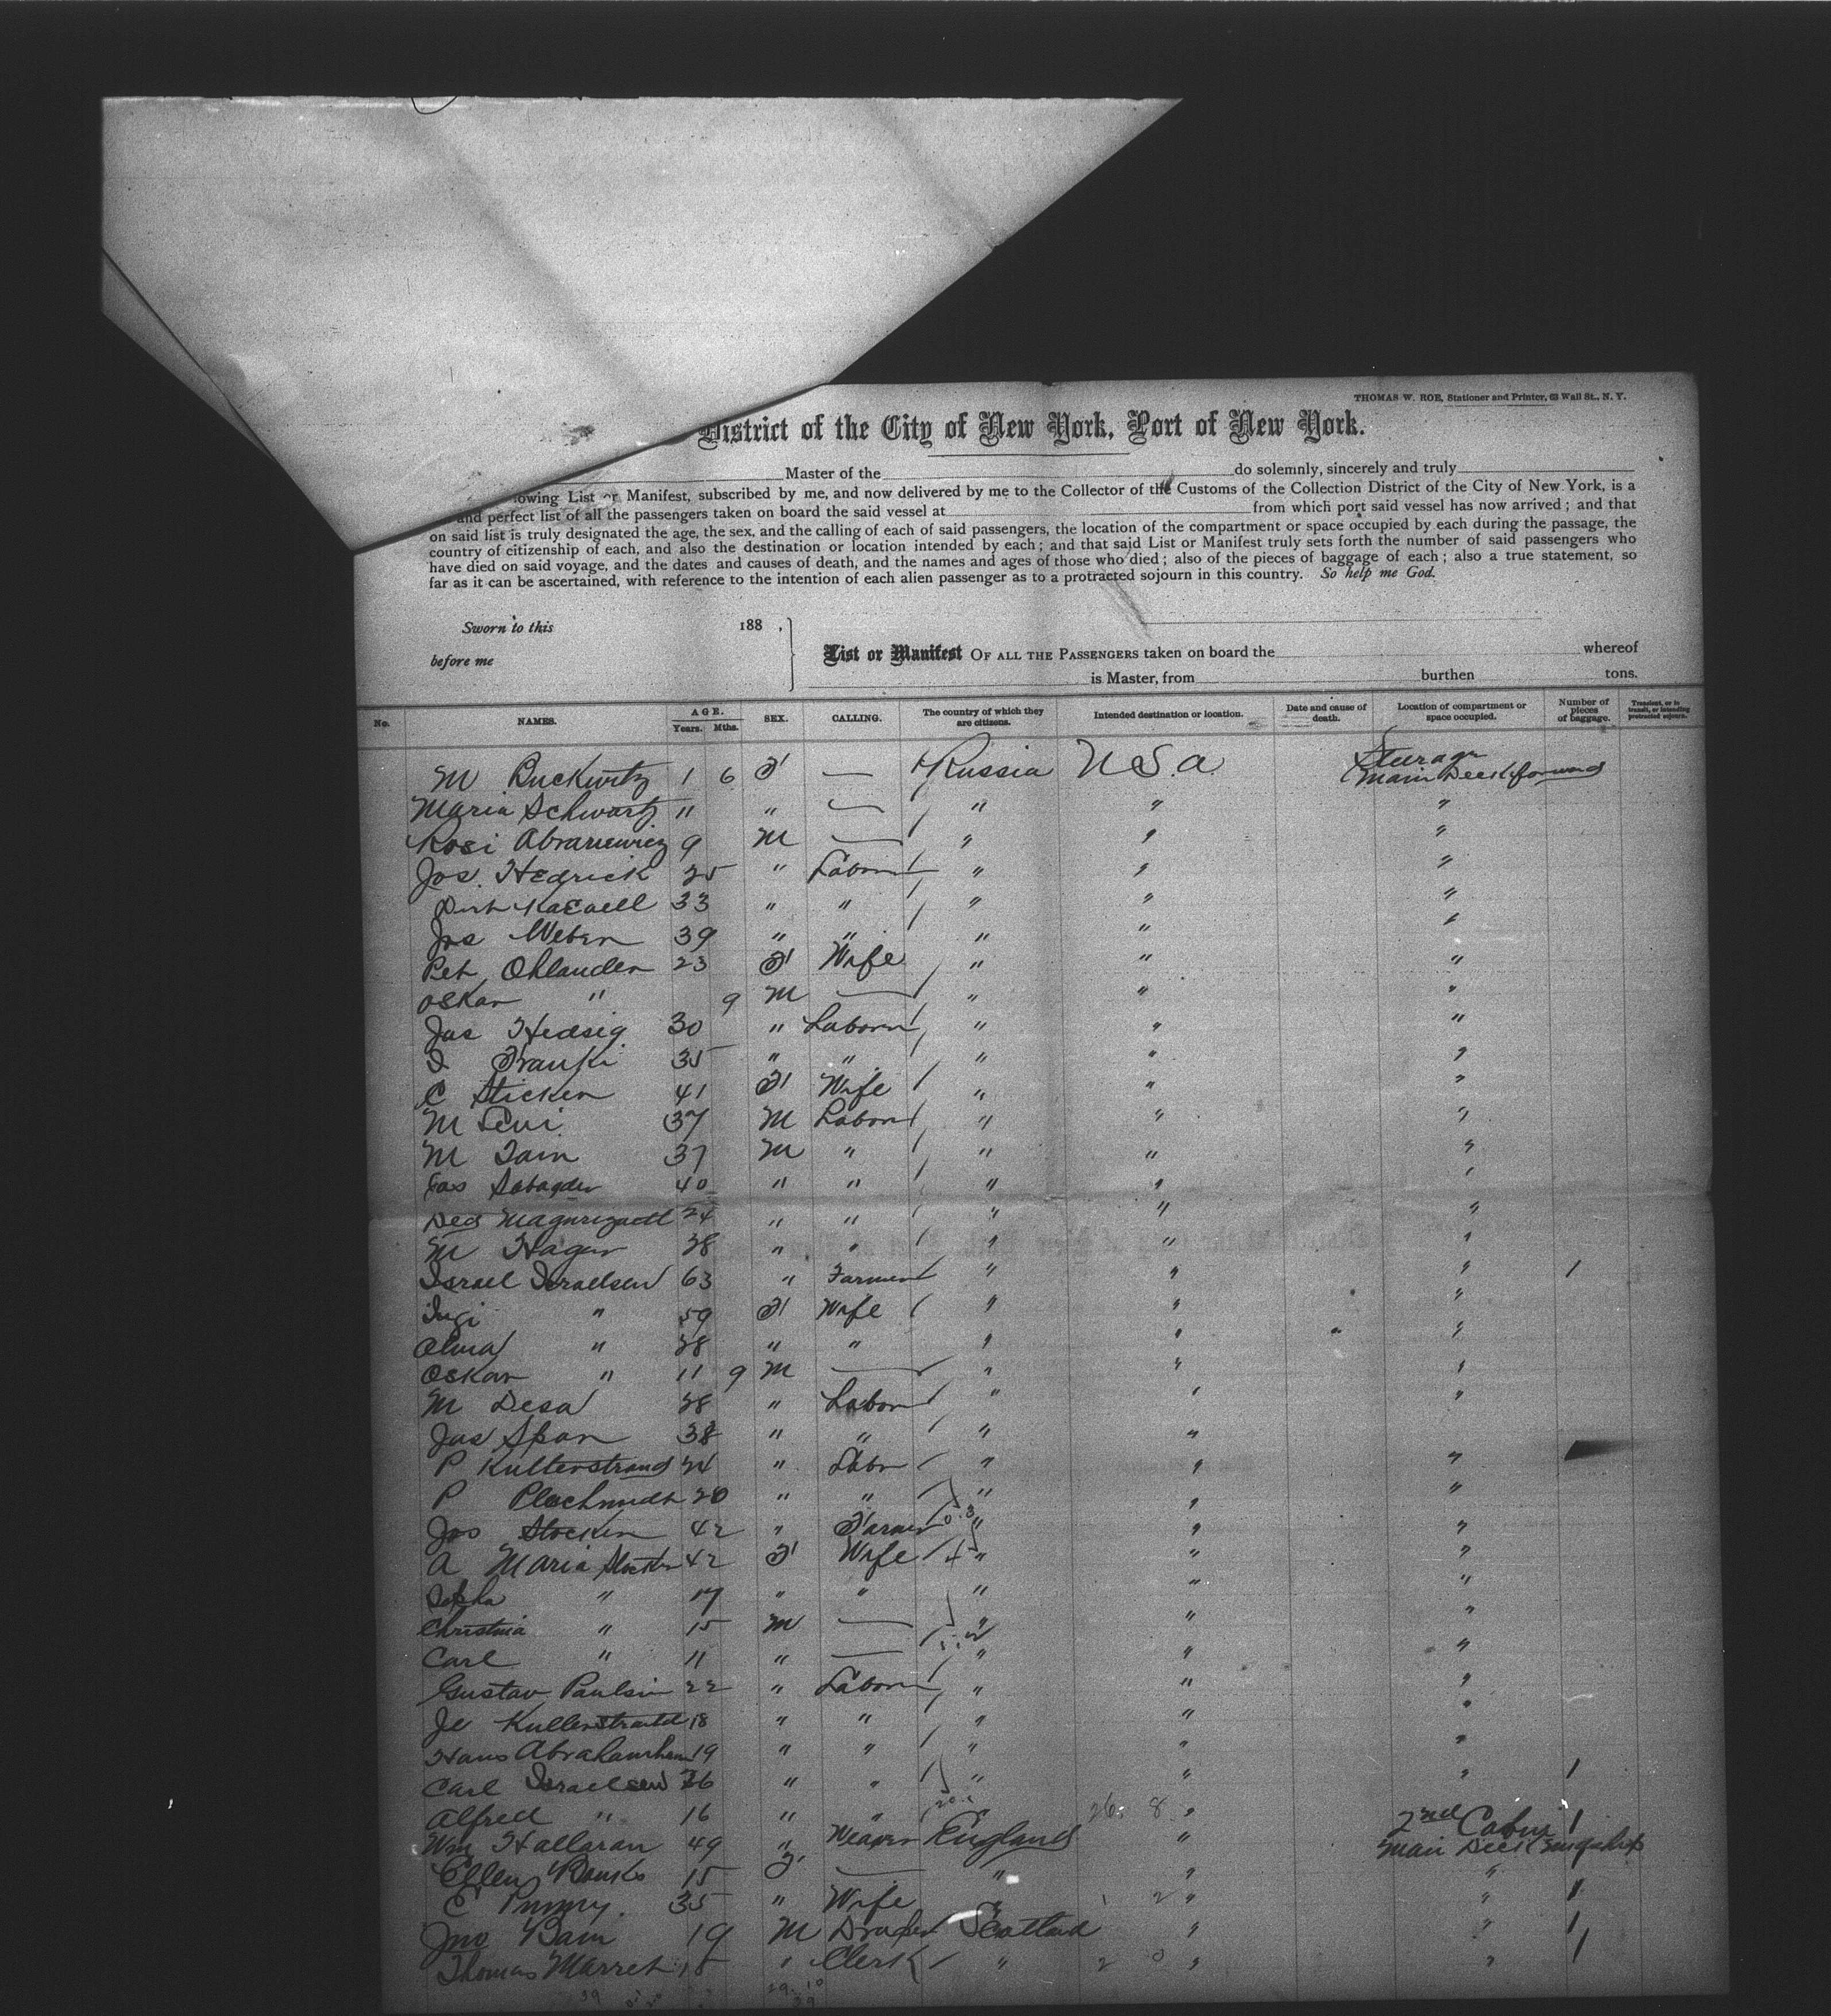 THOMAS W. ROE, Stationer and Printer, 63 Wall St., N. Y.
District of the City of New York, Port of New York.
Master of the do solemnly, sincerely and truly
owing List or Manifest, subscribed by me, and now delivered by me to the Collector of the Customs of the Collection District of the City of New York, is a
and perfect list of all the passengers taken on board the said vessel at from which port said vessel has now arrived; and that
on said list is truly designated the age, the sex, and the calling of each of said passengers, the location of the compartment or space occupied by each during the passage, the
country of citizenship of each, and also the destination or location intended by each; and that said List or Manifest truly sets forth the number of said passengers who
have died on said voyage, and the dates and causes of death, and the names and ages of those who died; also of the pieces of baggage of each; also a true statement, so
far as it can be ascertained, with reference to the intention of each alien passenger as to a protracted sojourn in this country. So help me God.
Sworn to this 188 ,
before me
List or Manifest OF ALL THE PASSENGERS taken on board the whereof
is Master, from burthen tons.
No. NAMES. AGE. Years. Mths. SEX. CALLING. The country of which they are citizens. Intended destination or location. Date and cause of death. Location of compartment or space occupied. Number of pieces of baggage. Transient, or in transit, or intending protracted sojourn.
M Buckwitz 1 6 F — Russia U.S.A. Sturage Main Deck forward
Maria Schwartz 11 " — " " "
Rosi 9 M — " " "
Jos. Hedrick 25 " Labor " " "
33 " " " " "
Jos Weber 39 " " " " "
Pet Ohlander 23 F Wife " " "
Oskar " 9 M — " " "
Jas Hedsig 30 " Labor " " "
I Franki 35 " " " " "
C Sticker 41 F Wife " " "
M Levi 37 M Labor " " "
M Tain 37 M " " " "
40 " " " " "
24 " " " " "
M Hager 28 " " " " "
Israel Israelsen 63 " Farmer " " " 1
Ingi " 59 F Wife " " "
Alma " 28 " " " " "
Oskar " 11 9 M — " " "
M Desa 28 " Labor " " "
Jas Span 38 " " " "
P Kullerstrand 24 " Labr " " "
P 20 " " " " "
Jos Stocken 42 " Farmer " " "
A Maria Stocken 42 F Wife " " "
" 17 " " " " "
Christina " 15 M — " " "
Carl " 11 " — " " "
Gustav Paulsin 22 " Labor " " "
Je Kullerstrand 18 " " " " "
Hans 19 " " " " "
Carl Israelsen 26 " " " " " 1
Alfred " 16 " " " 1
Wm Hallaran 49 " Weaver England " 2nd Cabin Main Deck
Ellen Banks 15 F — " " "
C 35 " Wife " " " 1
Jno Bain 19 M Draper Scotland " " 1
Thomas Marret 18 " Clerk " " " 1